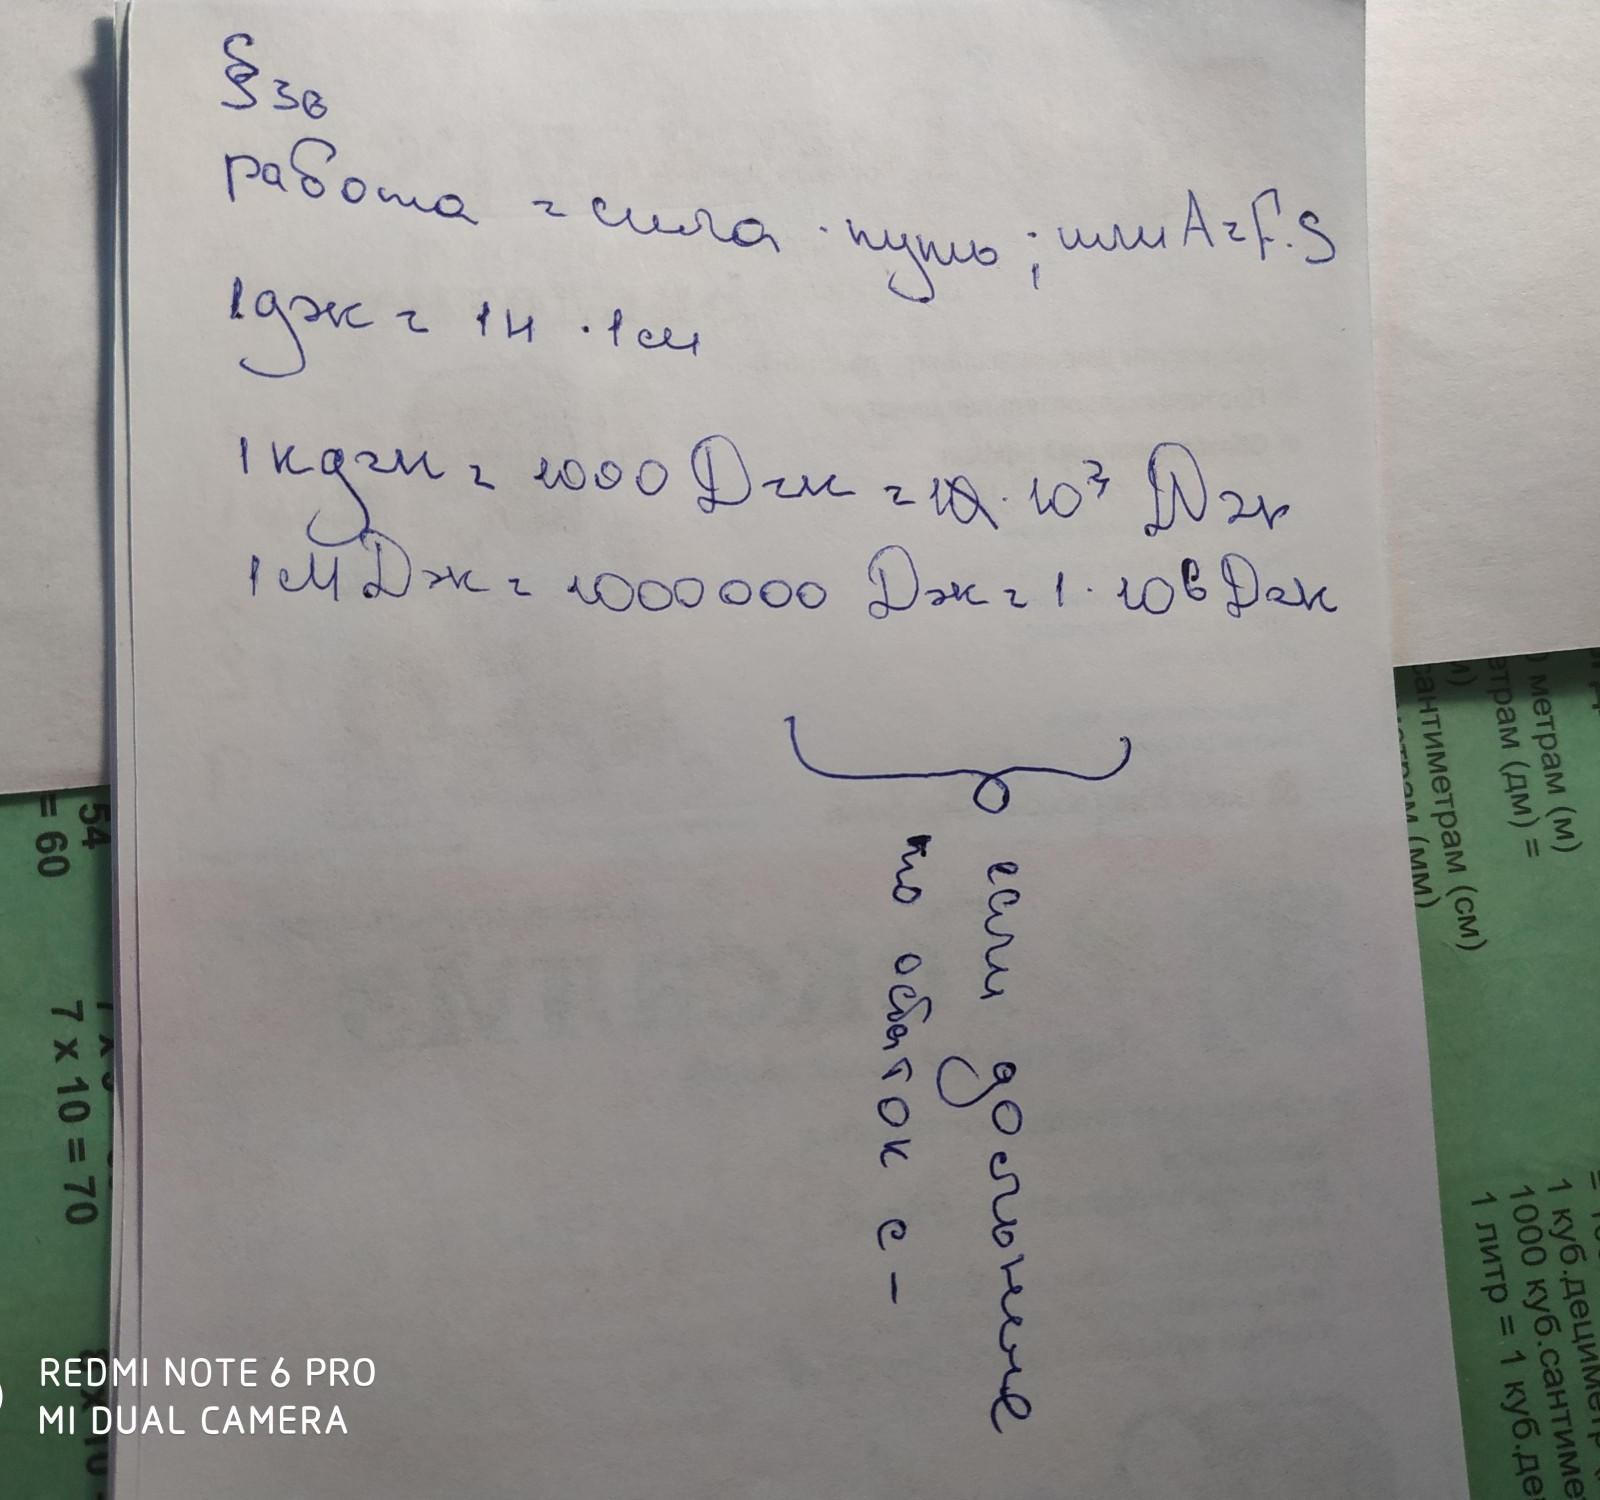 § 36
работа = сила · путь ; или A = F · S
1дж = 1н · 1м
1кдж = 1000 Дж = 1 · 10³ Дж
1мДж = 1000000 Дж = 1 · 10⁶ Дж
если дольные
то остаток с -
54
= 60
7 x 10 = 70
метрам (м)
етрам (дм) =
сантиметрам (см)
(мм)
1 куб.дециметр
1000 куб.сантиме
1 литр = 1 куб.де
REDMI NOTE 6 PRO
MI DUAL CAMERA